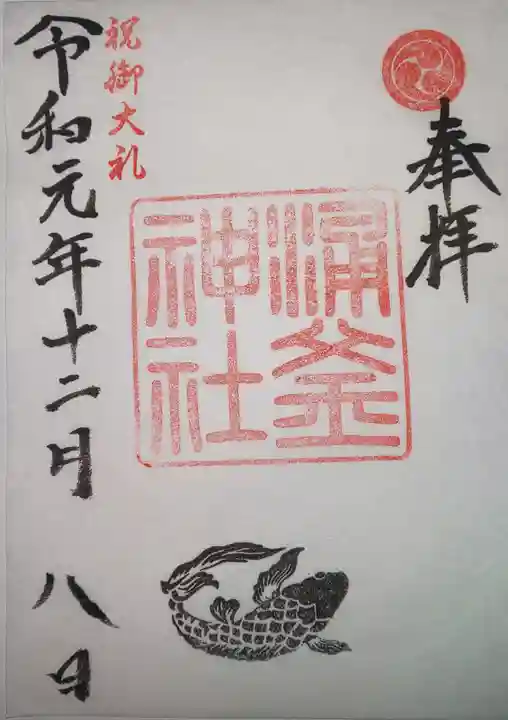 奉拝
涌釜
神社
祝御大礼
令和元年十二月 八日